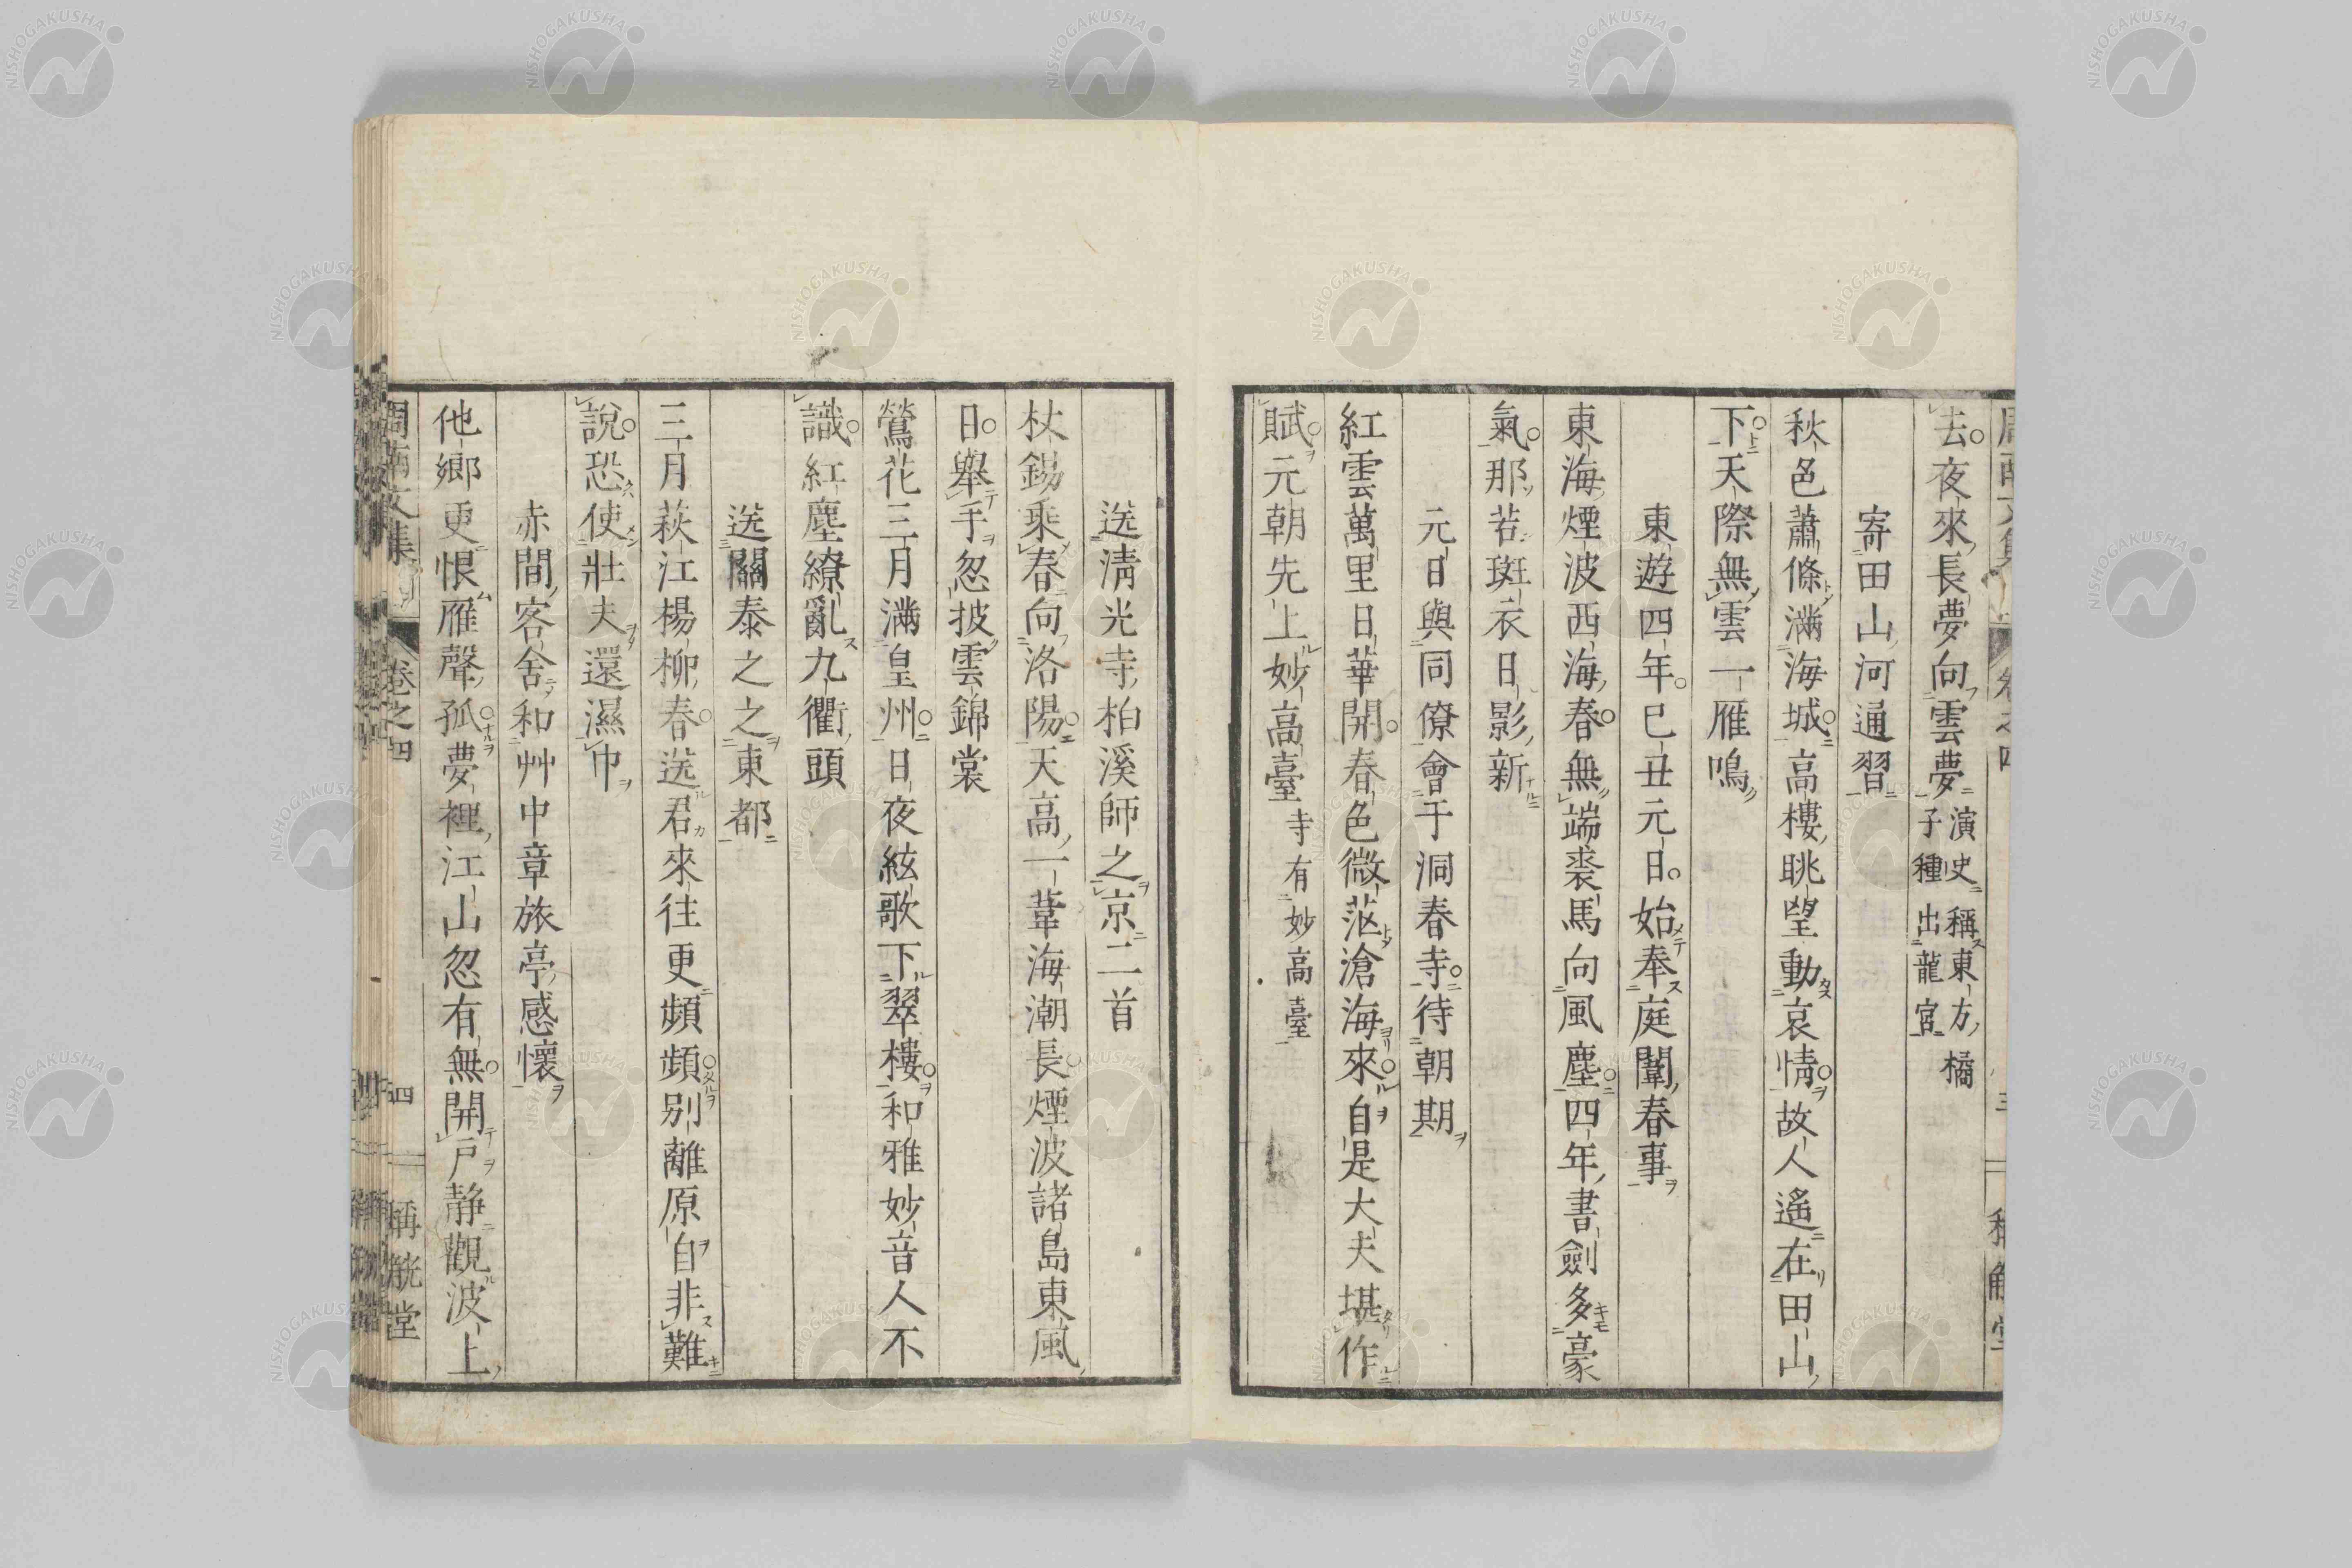 去夜來長夢向雲夢演史稱東方橘
子種出龍宮
寄田山河通習
秋色蕭條滿海城高樓眺望動哀情故人遙在田山
下天際無雲一雁鳴
東遊四年巳丑元日始奉庭闈春事
東海煙波西海春無端裘馬向風塵四年書劍多豪
氣那若斑衣日影新
元日與同僚會于洞春寺待朝期
紅雲萬里日華開春色微茫滄海來自是大夫堪作
賦元朝先上妙高臺寺有妙高臺
送淸光寺柏溪師之京二首
杖錫乘春向洛陽天高一葦海潮長煙波諸島東風
日舉手忽披雲錦裳
鶯花三月滿皇州日夜絃歌下翠樓和雅妙音人不
識紅塵繚亂九衢頭
送關泰之之東都
三月萩江楊柳春送君來往更頻頻別離原自非難
說恐使壯夫還濕巾
赤間客舍和艸中章旅亭感懷
他鄉更恨雁聲孤夢裡江山忽有無開戶靜觀波上
周南文集 卷之四 四 稱觥堂
NISHOGAKUSHA